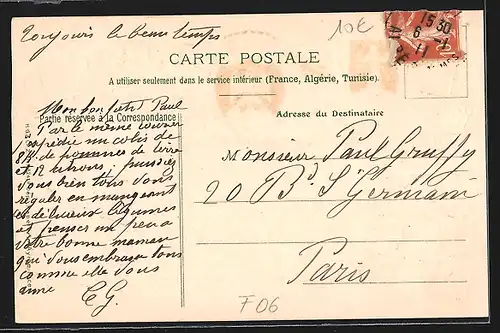 Toujours le beau temps
10€
15 30
6-1
11
CARTE POSTALE
A utiliser seulement dans le service intérieur (France, Algérie, Tunisie).
Partie réservée à la Correspondance
Adresse du Destinataire
Mon bon petit Paul
Par le même courrier
expédie un colis de
8 K de pommes de terre
et 12 puissiez
vous bien tous vous
régaler en mangeant
ces légumes
et penser un peu a
votre bonne maman
qui vous embrasse tous
comme elle vous
aime
CG.
Monsieur Paul Gruffy
20 Bd St Germain
Paris
F06